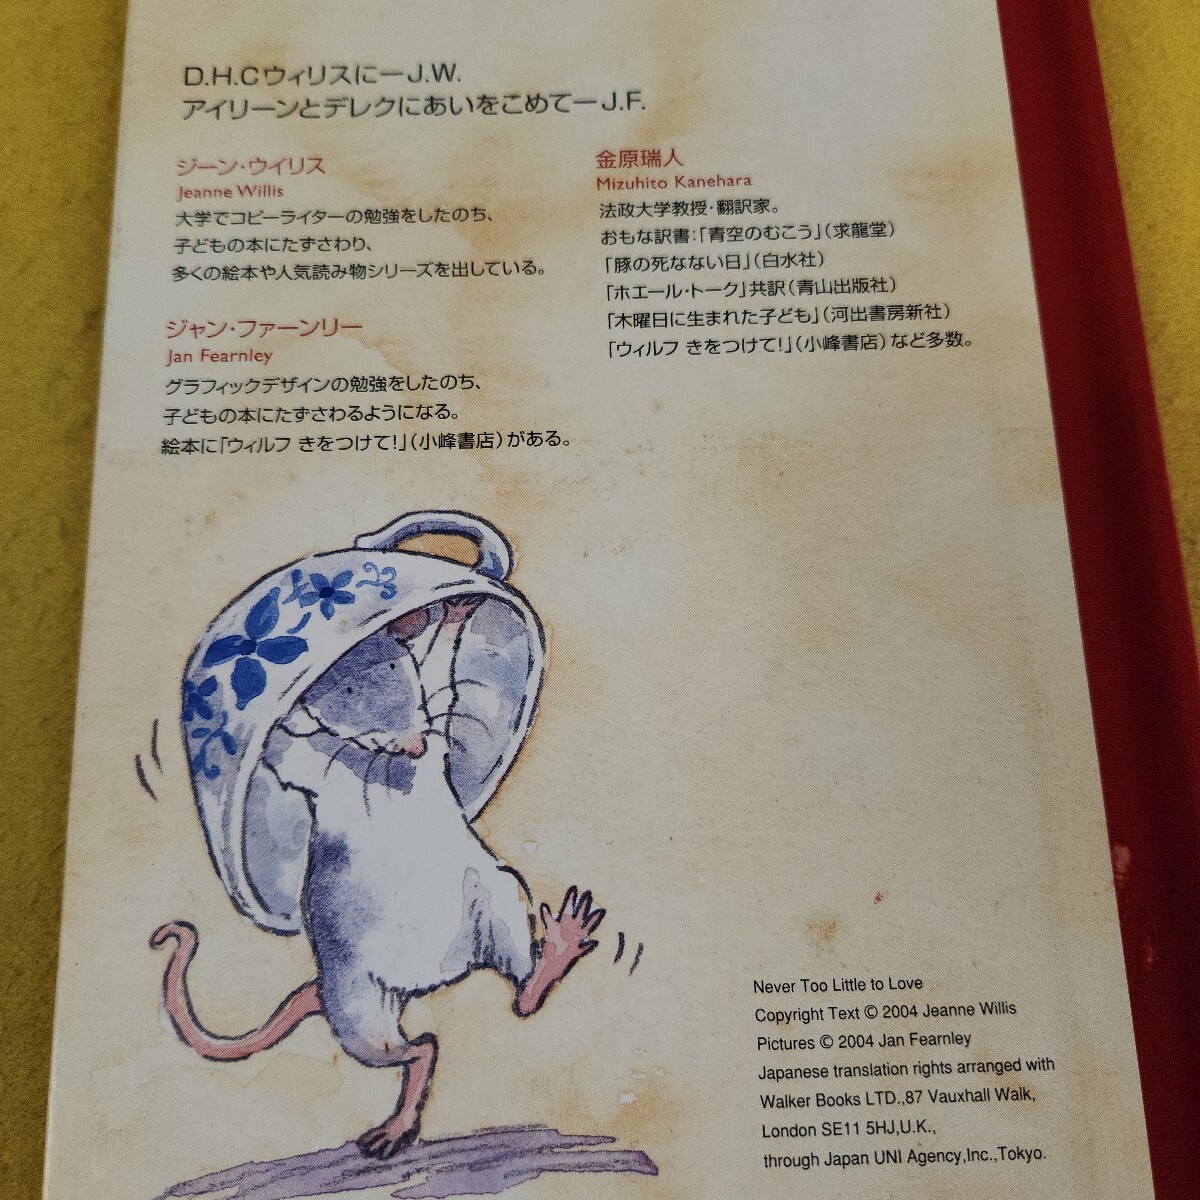 D.H.Cウィリスに―J.W.
アイリーンとデレクにあいをこめて―J.F.
ジーン・ウイリス
Jeanne Willis
大学でコピーライターの勉強をしたのち、
子どもの本にたずさわり、
多くの絵本や人気読み物シリーズを出している。
ジャン・ファーンリー
Jan Fearnley
グラフィックデザインの勉強をしたのち、
子どもの本にたずさわるようになる。
絵本に「ウィルフ きをつけて!」(小峰書店)がある。
金原瑞人
Mizuhito Kanehara
法政大学教授・翻訳家。
おもな訳書:「青空のむこう」(求龍堂)
「豚の死なない日」(白水社)
「ホエール・トーク」共訳(青山出版社)
「木曜日に生まれた子ども」(河出書房新社)
「ウィルフ きをつけて!」(小峰書店)など多数。
Never Too Little to Love
Copyright Text © 2004 Jeanne Willis
Pictures © 2004 Jan Fearnley
Japanese translation rights arranged with
Walker Books LTD.,87 Vauxhall Walk,
London SE11 5HJ,U.K.,
through Japan UNI Agency,Inc.,Tokyo.